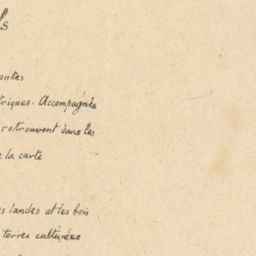 ls
antes
triques. Accompagnée
retrouvent dans les
e la carte
es landes et les bois
terres cultivées